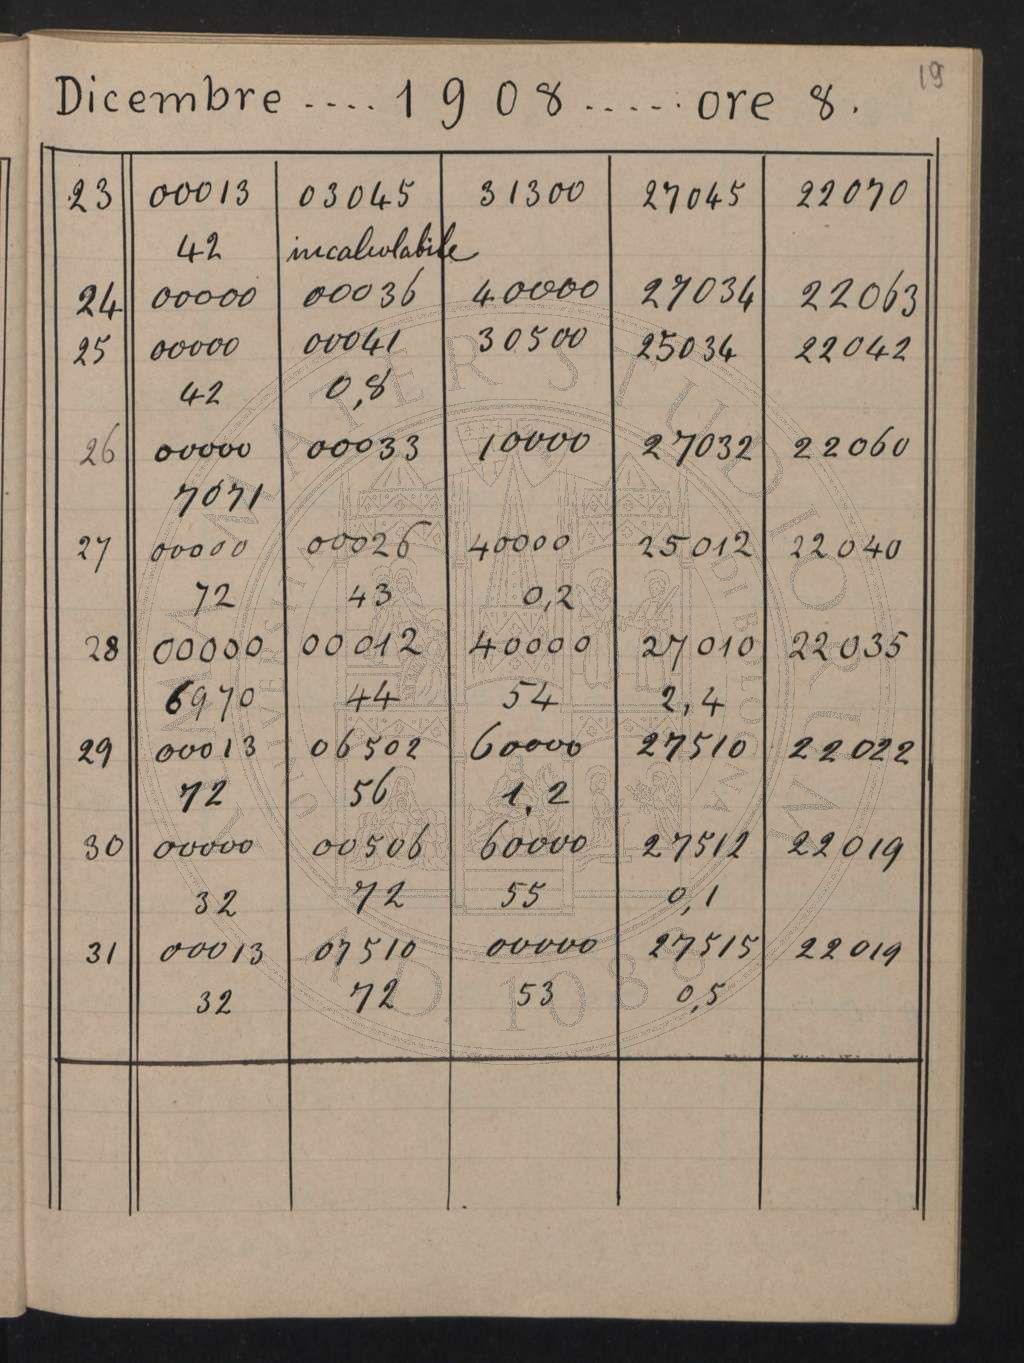 19
Dicembre .... 1908 ..... ore 8.
23 00013 03045 31300 27045 22070
42 incalcolabile
24 00000 00036 40000 27034 22063
25 00000 00041 30500 25034 22042
42 0,8
26 00000 00033 10000 27032 22060
7071
27 00000 00026 40000 25012 22040
72 43 0,2
28 00000 00012 40000 27010 22035
6970 44 54 2,4
29 00013 06502 60000 27510 22022
72 56 1,2
30 00000 00506 60000 27512 22019
32 72 55 0,1
31 00013 07510 00000 27515 22019
32 72 53 0,5
ALMA MATER STUDIORUM
A.D. 1088